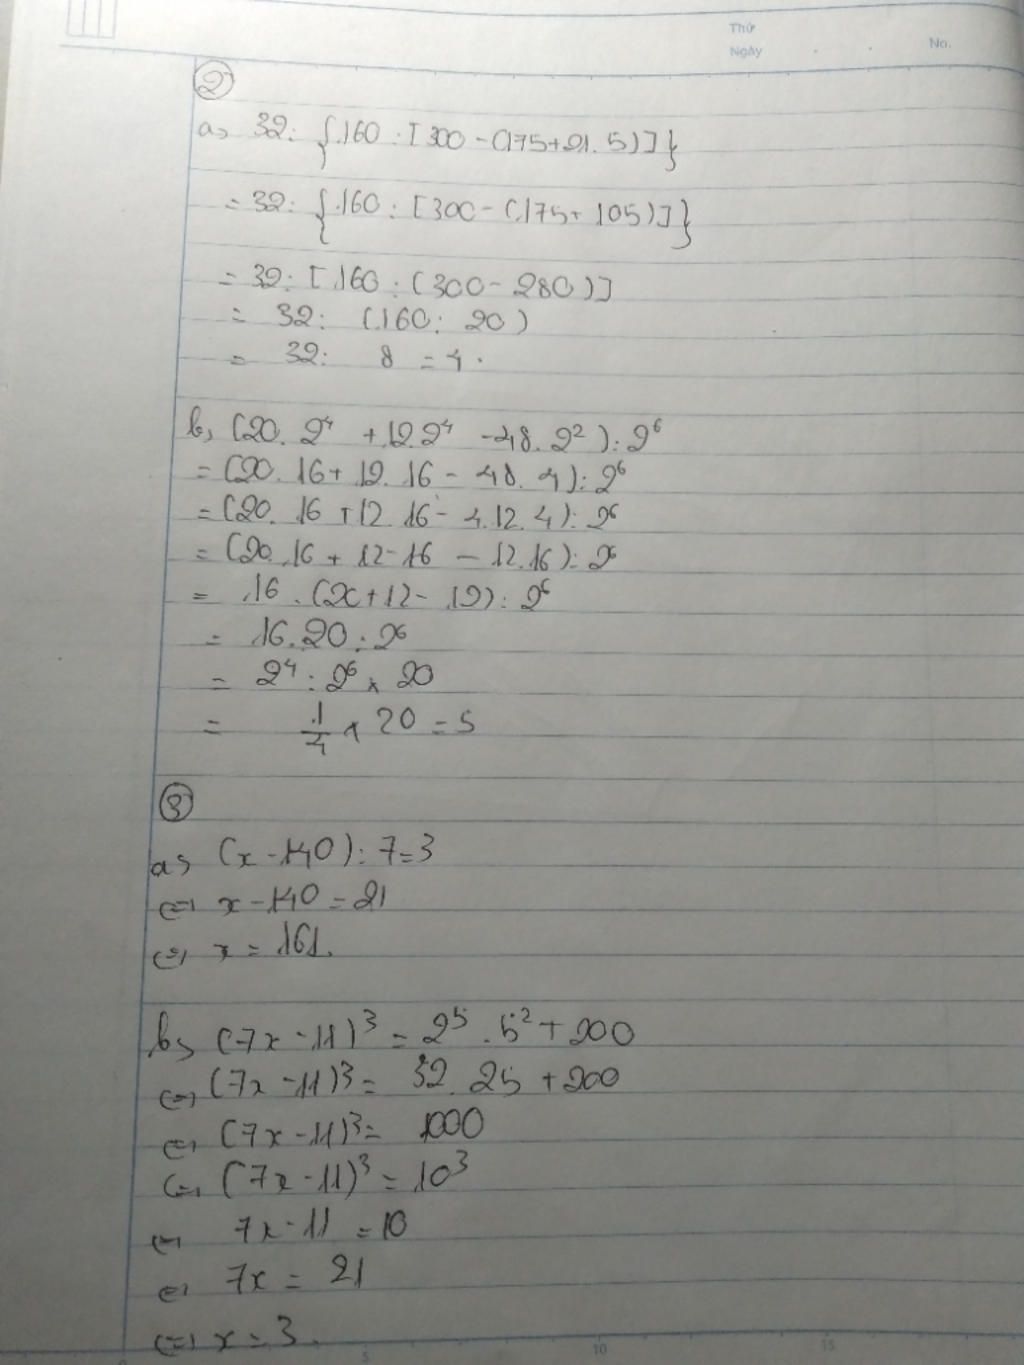 Thứ
Ngày
No.
2
a, 32: {160 : [300 - (175+21.5)]}
= 32: {160 : [300 - (175+105)]}
= 32: [160 : (300 - 280)]
= 32: (160: 20)
= 32: 8 = 4.
b, (20. 2⁴ + 12.2⁴ - 48. 2²): 2⁶
= (20. 16 + 12. 16 - 48. 4): 2⁶
= (20. 16 + 12. 16 - 4.12.4): 2⁶
= (20.16 + 12-16 - 12.16): 2⁶
= 16 . (20+12- 12): 2⁶
= 16.20 : 2⁶
= 2⁴ : 2⁶ x 20
= 1/4 x 20 = 5
3
a, (x - 140): 7=3
⇔ x - 140 = 21
⇔ x = 161.
b, (7x - 11)³ = 2⁵ . 5² + 200
⇔ (7x - 11)³ = 32. 25 + 200
⇔ (7x - 11)³ = 1000
⇔ (7x - 11)³ = 10³
⇔ 7x - 11 = 10
⇔ 7x = 21
⇔ x = 3.
5 10 15